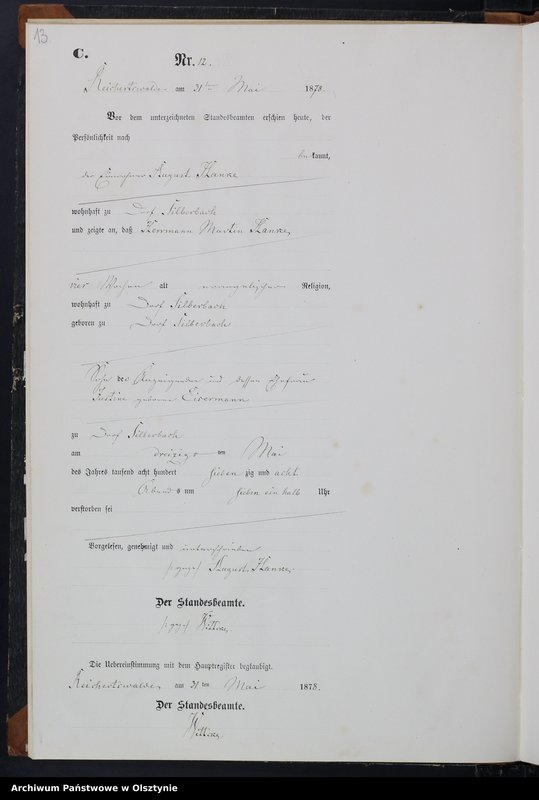 13.
C.
Nr. 12.
Reichertswalde am 31ten Mai 1878.
Vor dem unterzeichneten Standesbeamten erschien heute, der
Persönlichkeit nach
bekannt,
der Einwohner August Hanke
wohnhaft zu Dorf Silberbach
und zeigte an, daß Herrmann Martin Hanke,
vier Wochen alt evangelischer Religion,
wohnhaft zu Dorf Silberbach
geboren zu Dorf Silberbach
Sohn des Anzeigenden und dessen Ehefrau
Justine geborene Eisermann
zu Dorf Silberbach
am dreizigsten Mai
des Jahres tausend acht hundert sieben zig und acht
Abends um sieben ein halb Uhr
verstorben sei
Vorgelesen, genehmigt und unterschrieben
(gez.) August Hanke.
Der Standesbeamte.
(gez.)
Die Uebereinstimmung mit dem Hauptregister beglaubigt.
Reichertswalde am 31ten Mai 1878.
Der Standesbeamte.
Archiwum Państwowe w Olsztynie